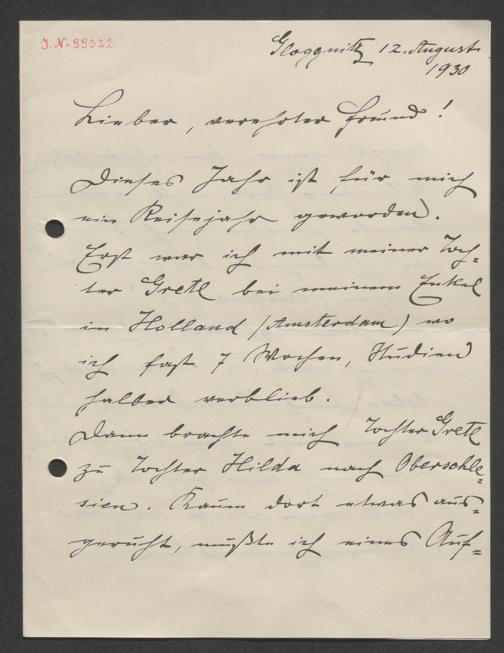 J.N. 99322
Gloggnitz 12. August
1930
Lieber, verehrter Freund!
Dieses Jahr ist für mich
ein Reisejahr geworden.
Erst war ich mit meiner Toch=
ter Gretl bei meinem Enkel
in Holland /Amsterdam/ wo
ich fast 7 Wochen, Studien
halber verblieb.
Dann brachte mich Tochter Gretl
zu Tochter Hilda nach Oberschle=
sien. Kaum dort etwas aus=
geruht, mußte ich eines Auf=